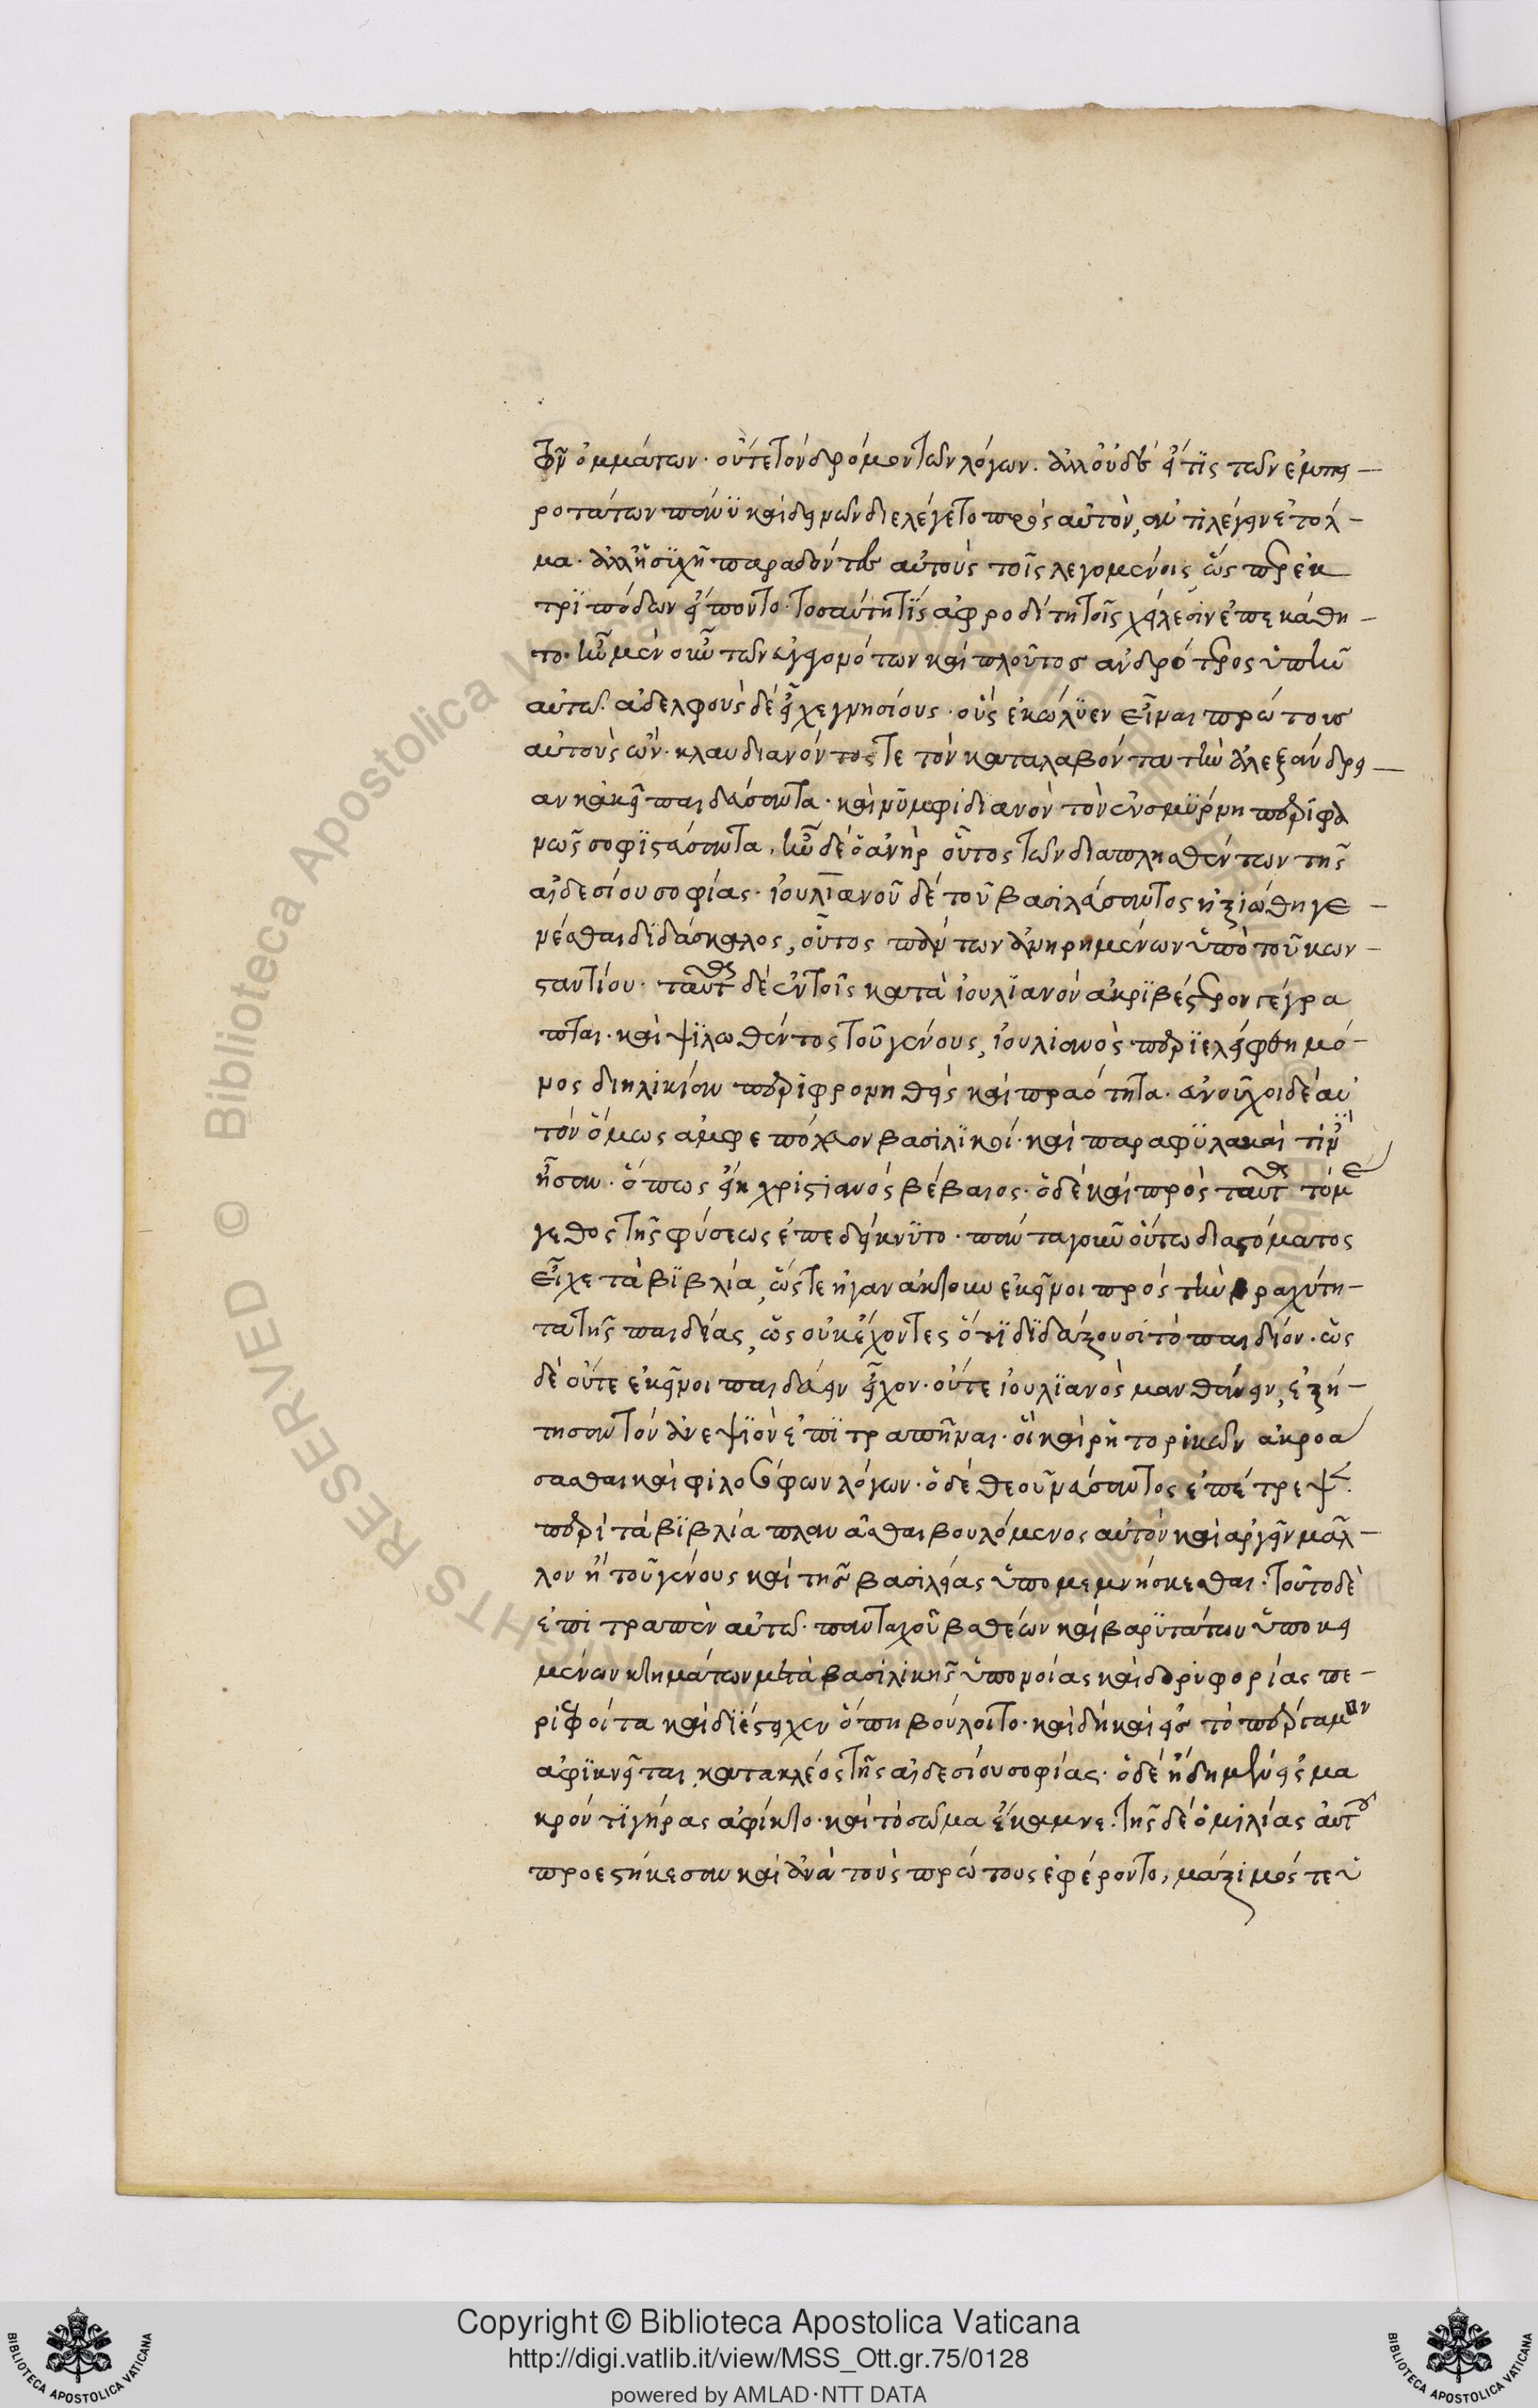 τῶν ὀμμάτων· οὔτε τὸν δρόμον τῶν λόγων. ἀλλ' οὐδὲ εἴ τις τῶν ἐμπει-
ροτάτων πάνυ καὶ δεινῶν διελέγετο πρὸς αὐτὸν, ἀντιλέγειν ἐτόλ-
μα· ἀλλ' ἡσυχῆ παραδόντες αὐτοὺς τοῖς λεγομένοις, ὥσπερ ἐκ
τριπόδων εἵποντο· τοσαύτη τις ἀφροδίτη τοῖς χείλεσιν ἐπεκάθη-
το· ἦν μὲν οὖν τῶν εὐγεγονότων καὶ πλοῦτος ἁνδρότερος ὑπῆν
αὐτῶ· ἀδελφοὺς δὲ εἶχε γνησίους· οὓς ἐκώλυεν εἶναι πρώτους
αὐτοὺς ὤν· κλαυδιανόν τος τε τὸν καταλαβόντα τὴν ἀλεξάνδρει-
αν κἀκεῖ παιδεύσαντα· καὶ νυμφιδιανὸν τὸν ἐν σμύρνη περιφα
νῶς σοφιστεύσαντα, ἦν δὲ ὁ ἀνὴρ οὗτος τῶν διαπλησθέντων τῆς
αἰδεσίου σοφίας· ἰουλιανοῦ δὲ τοῦ βασιλεύσαντος ἠξιώθη γε-
νέσθαι διδάσκαλος, οὗτος πάντων ἀνηρημένων ὑπὸ τοῦ κων-
σταντίου· ταῦτα δὲ ἐν τοῖς κατὰ ἰουλιανὸν ἀκριβέστερον γέγρα
πται· καὶ ψιλωθέντος τοῦ γένους, ἰουλιανὸς περιελείφθη μό-
νος δι' ἡλικίαν περιφρονηθεὶς καὶ πραότητα· εὐνοῦχοι δὲ αὐ
τὸν ὅμως ἀμφεπόλευον βασιλικοί· καὶ παραφυλακαί τινες
ἦσαν· ὅπως εἴη χριστιανὸς βέβαιος· ὁ δὲ καὶ πρὸς ταῦτα τὸ μέ
γεθος τῆς φύσεως ἐπεδείκνυτο· πάντα γοῦν οὕτω διὰ στόματος
εἶχε τὰ βιβλία, ὥστε ἠγανάκτουν ἐκεῖνοι πρὸς τὴν βραχύτη-
τα τῆς παιδείας, ὡς οὐκ ἔχοντες ὅτι διδάξουσι τὸ παιδίον· ὡς
δὲ οὔτε ἐκεῖνοι παιδεύειν εἶχον· οὔτε ἰουλιανὸς μανθάνειν, ἐξή-
τησαν τὸν ἀνεψιὸν ἐπιτραπῆναι· οἱ καὶ ῥητορικῶν ἀκροά
σασθαι καὶ φιλοσόφων λόγων· ὁ δὲ θεοῦ νεύσαντος ἐπέτρεψε.
περὶ τὰ βιβλία πλανᾶσθαι βουλόμενος αὐτὸν καὶ ἀργεῖν μᾶλ-
λον ἢ τοῦ γένους καὶ τῆς βασιλείας ὑπομιμνήσκεσθαι· τοῦτο δὲ
ἐπιτραπὲν αὐτῶ· πανταχοῦ βαθέων καὶ βαρυτάτων ὑποκει
μένων κτημάτων μετὰ βασιλικῆς ὑπονοίας καὶ δορυφορίας πε-
ριεφοίτα καὶ διέστειχεν ὅπη βούλοιτο· καὶ δὴ καὶ εἰς τὸ πέργαμον
ἀφικνεῖται, κατὰ κλέος τῆς αἰδεσίου σοφίας· ὁ δὲ ἤδη μὲν εἰς μα
κρόν τι γῆρας ἀφίκτο· καὶ τὸ σῶμα ἔκαμνε. τῆς δὲ ὁμιλίας αὐτοῦ
προεστήκεσαν καὶ ἀνὰ τοὺς πρώτους ἐφέροντο, μάξιμός τε ὁ
Copyright © Biblioteca Apostolica Vaticana
http://digi.vatlib.it/view/MSS_Ott.gr.75/0128
powered by AMLAD·NTT DATA